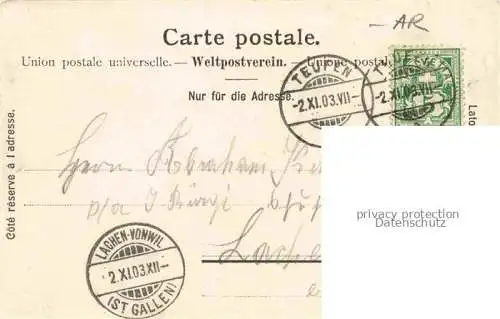 AR
Carte postale.
Union postale universelle. — Weltpostverein. — Unione postale
Nur für die Adresse.
Côté réservé à l'adresse.
TEUFEN
-2.XI.03.VII-
TEUFEN
-2.XI.03.VII-
Lato
Herrn Abraham
p/a J
Lachen
LACHEN-VONWIL
2.XI.03.XII-
(ST GALLEN)
privacy protection
Datenschutz